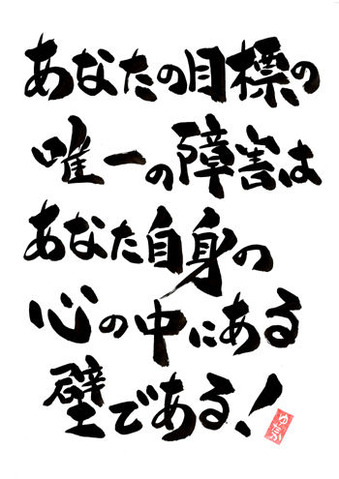 あなたの目標の
唯一の障害は
あなた自身の
心の中にある
壁である!
ゆたか